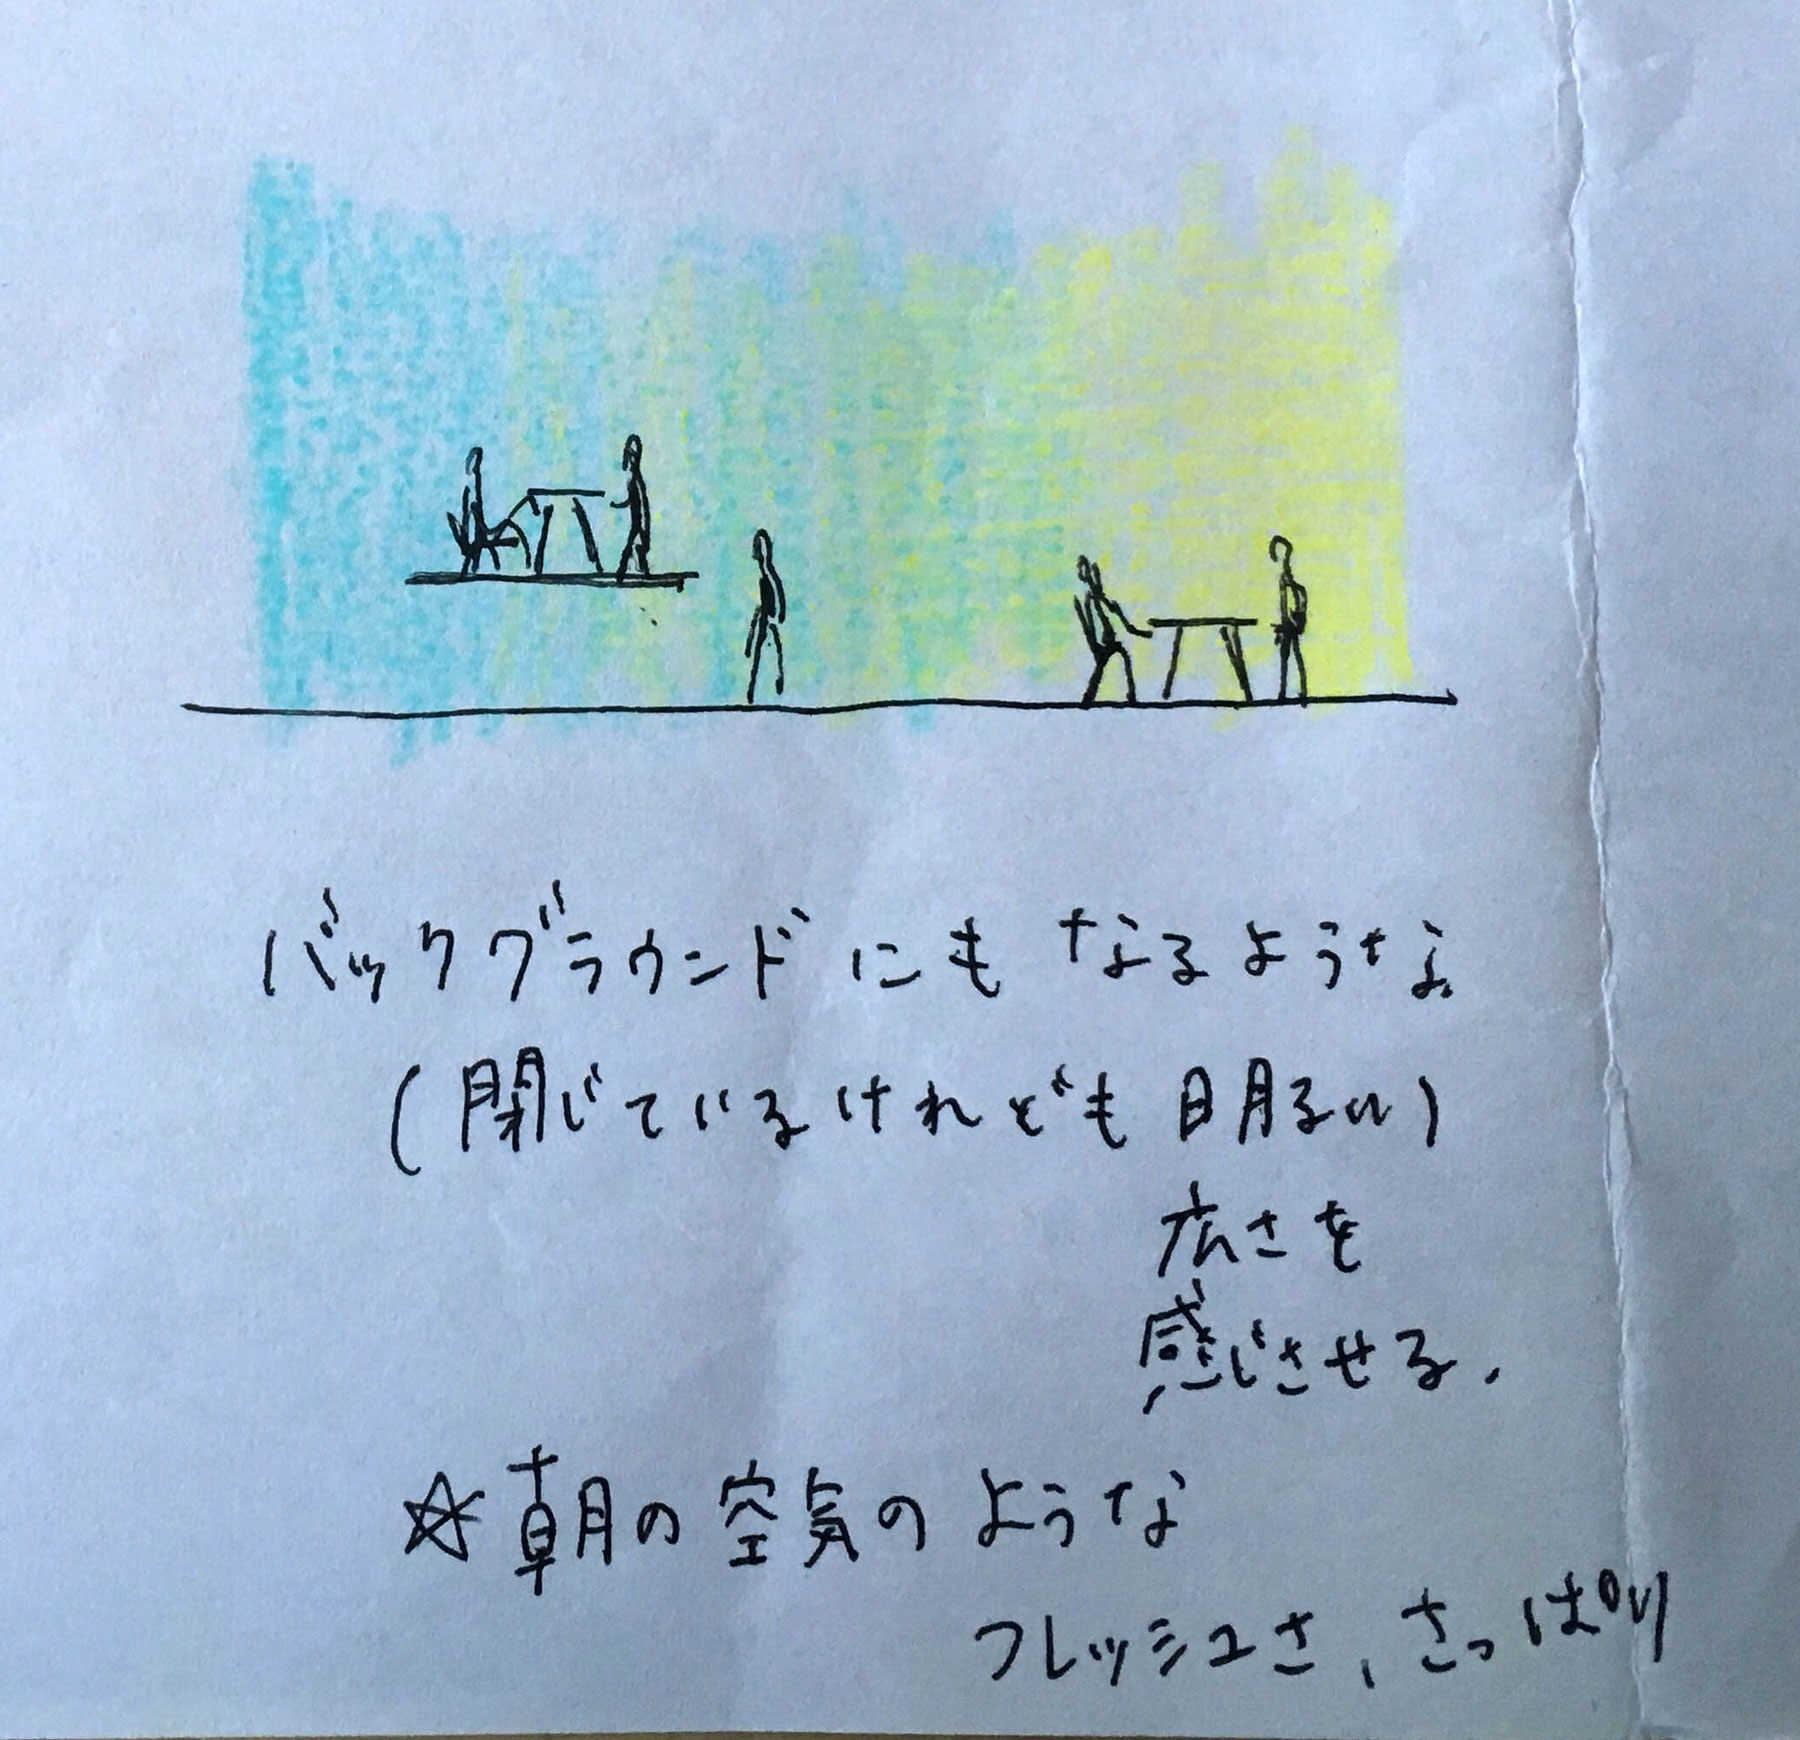 バックグラウンドにもなるような
(閉じているけれども明るい)
広さを
感じさせる、
☆朝の空気のような
フレッシュさ、さっぱり